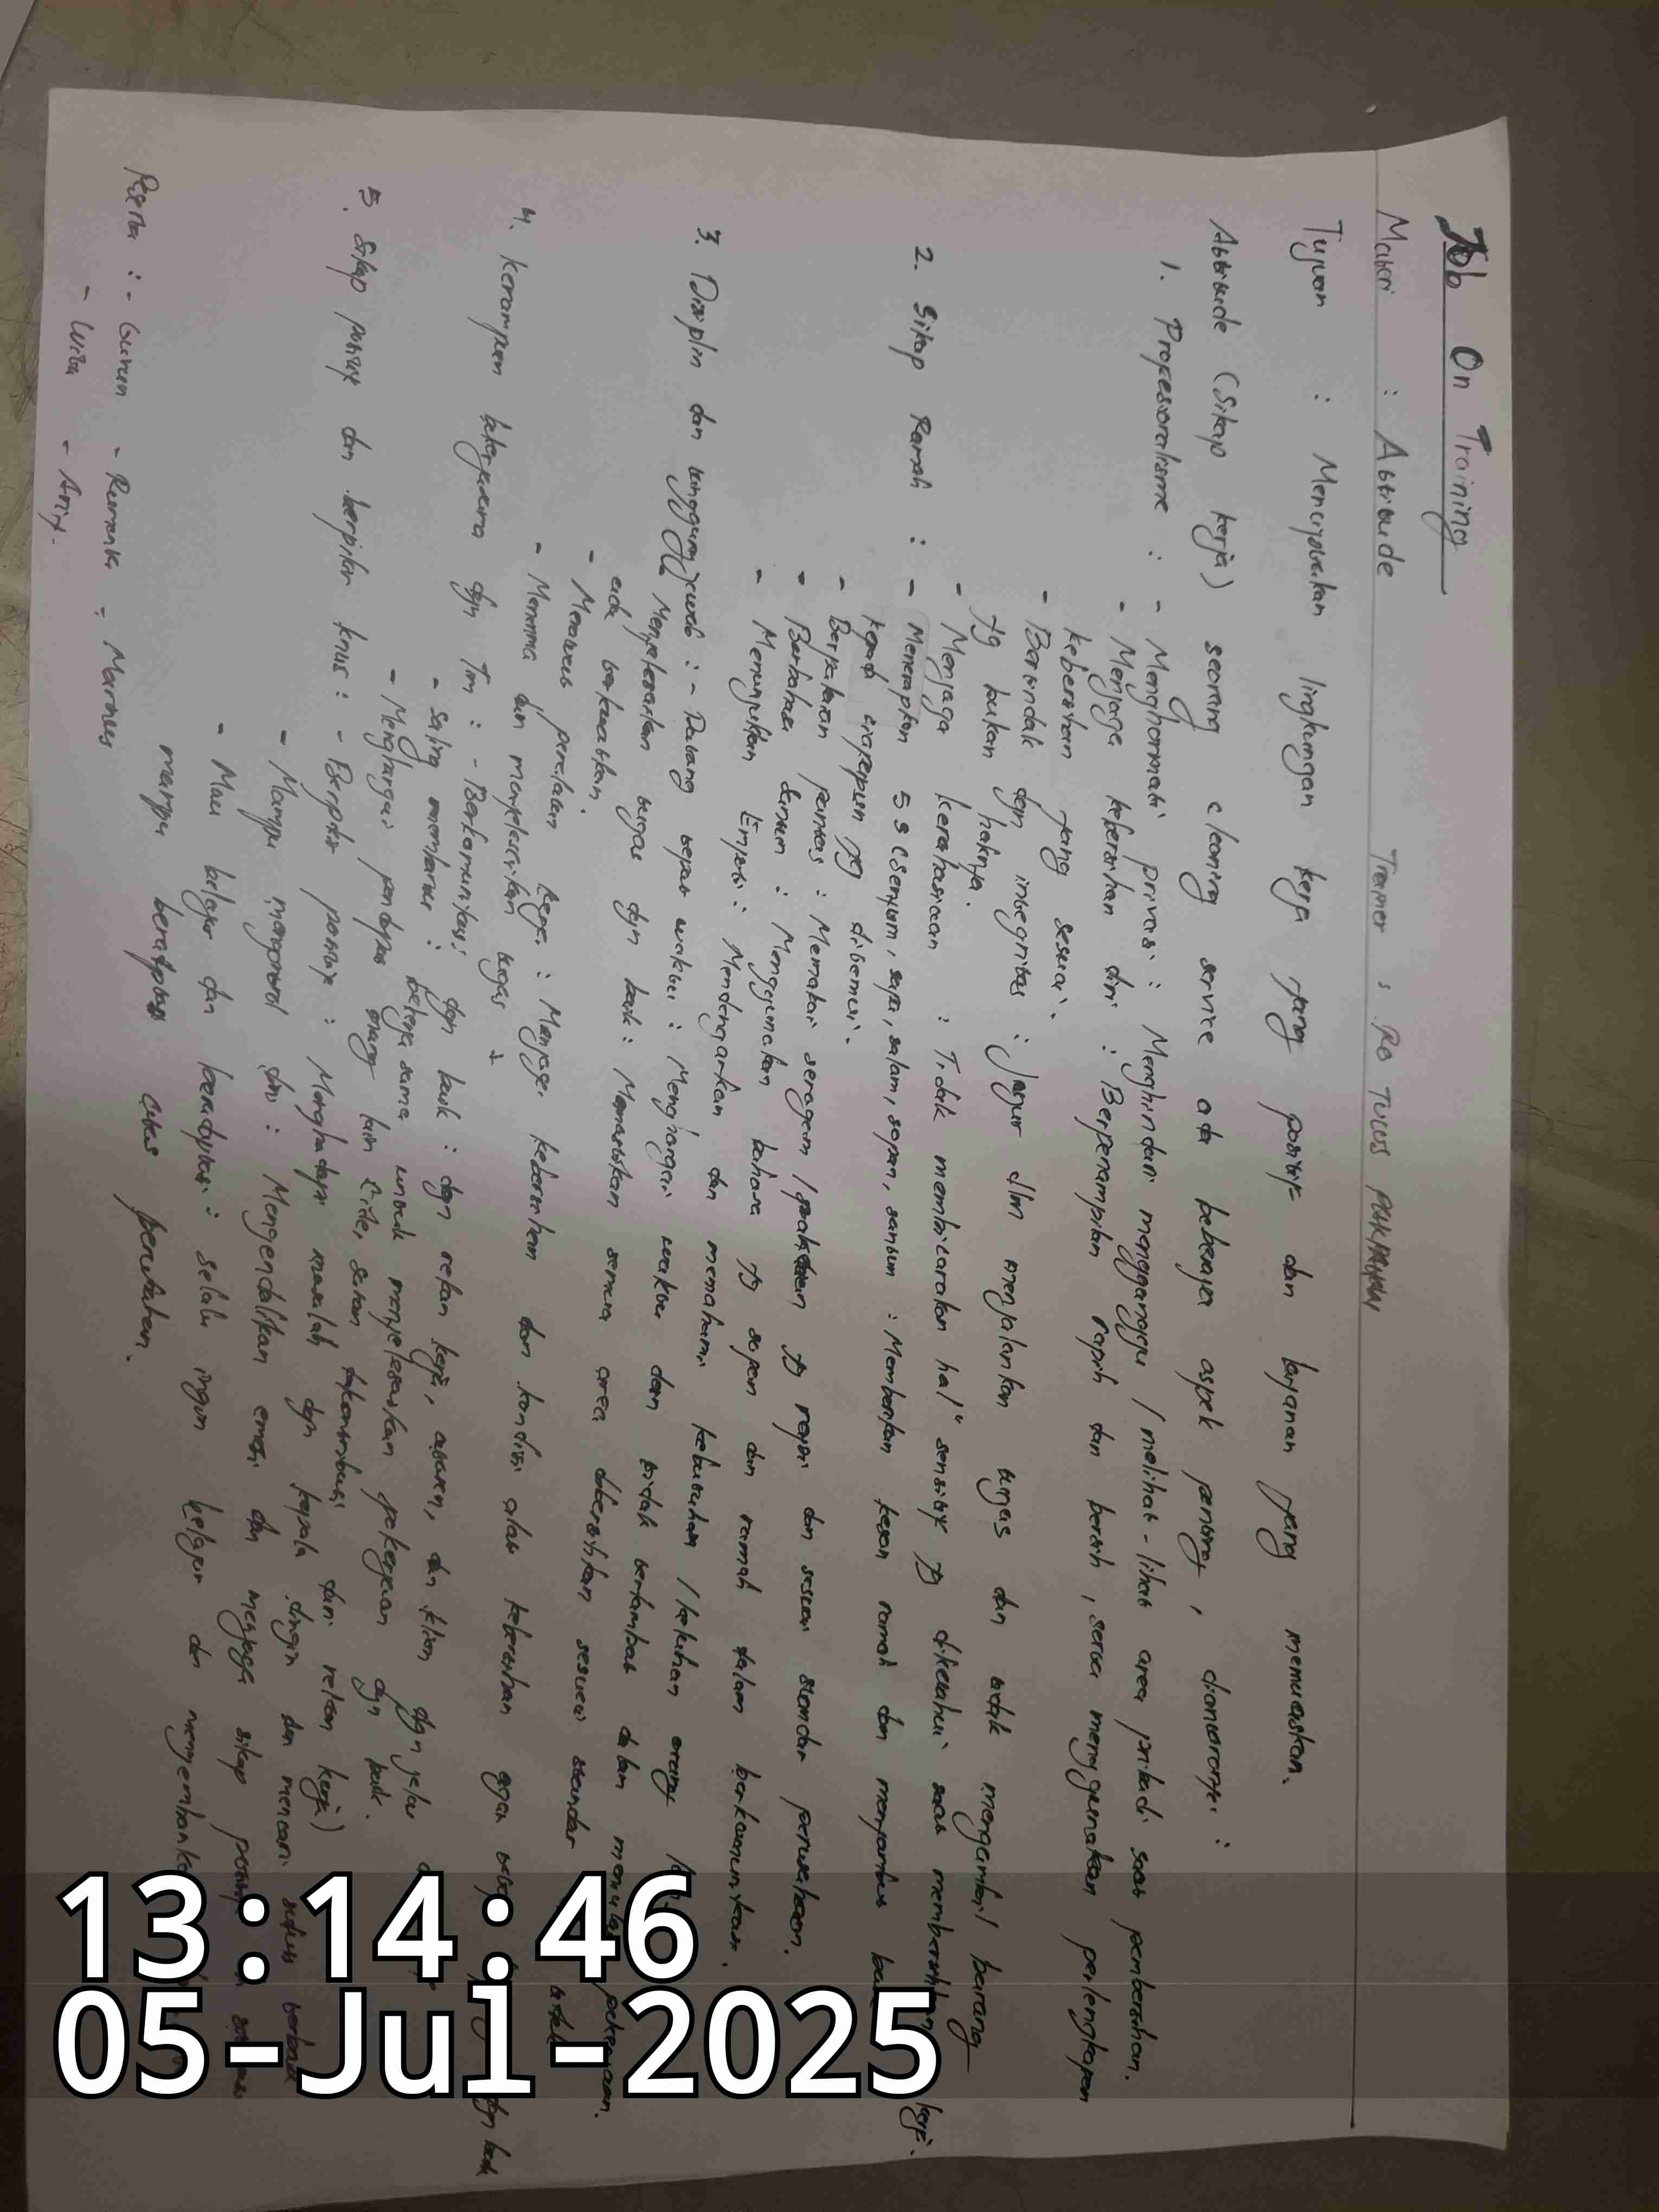 Job On Training
Materi : Attitude Trainer : RO TULUS
Tujuan : Menciptakan lingkungan kerja yang positif dan layanan yang memuaskan.
Attitude (Sikap kerja) seorang cleaning service ada beberapa aspek penting, diantaranya :
1. Profesionalisme : - Menghormati privasi : Menghindari mengganggu / melihat-lihat area pribadi saat pembersihan.
- Menjaga kebersihan diri : Berpenampilan rapih dan bersih, serta menggunakan perlengkapan
kebersihan yang sesuai.
- Bertindak dgn integritas : Jujur dlm menjalankan tugas dan tidak mengambil barang
yg bukan haknya.
- Menjaga kerahasiaan : Tidak membicarakan hal" sensitif yg diketahui saat membersihkan
kerja.
2. Sikap Ramah : - Menerapkan 5S (senyum, sapa, salam, sopan, santun : Memberikan kesan ramah dan menyambut
kepada siapapun yg ditemui.
- Berpakaian pantas : Memakai seragam / pakaian yg rapi dan sesuai standar perusahaan.
- Berbahasa santun : Menggunakan bahasa yg sopan dan ramah dalam berkomunikasi.
- Menunjukkan Empati : Mendengarkan dan memahami kebutuhan / keluhan orang
3. Disiplin dan tanggung jawab : - Datang tepat waktu : Menghargai waktu dan tidak terlambat dalam memulai pekerjaan.
- Menyelesaikan tugas dgn baik : Memastikan semua area dibersihkan sesuai standar
ada terlewatkan.
- Merawat peralatan kerja : Menjaga kebersihan dan kondisi alat kebersihan agar
dgn baik
- Menerima dan menjelaskan tugas
4. kerampen bekerjasama dgn Tim : - Berkomunikasi dgn baik : dgn rekan kerja, atasan, dan klien dgn jelas
- saling membantu : bekerja sama untuk menyelesaikan pekerjaan dgn baik.
- Menghargai pendapat orang lain (ide, saran, kontribusi dari rekan kerja)
5. Sikap positif dan berpikir kritis : - Berpikir positif : Menghadapi masalah dgn kepala dingin dan mencari solusi terbaik
- Mampu mengontrol diri : Mengendalikan emosi dan menjaga sikap
- Mau belajar dan beradaptasi : selalu ingin belajar dan mengembangkan
mampu beradaptasi perubahan.
Peserta : - Gunun - Rumanta - Marnes
- Wira - Arif.
13:14:46
05-Jul-2025